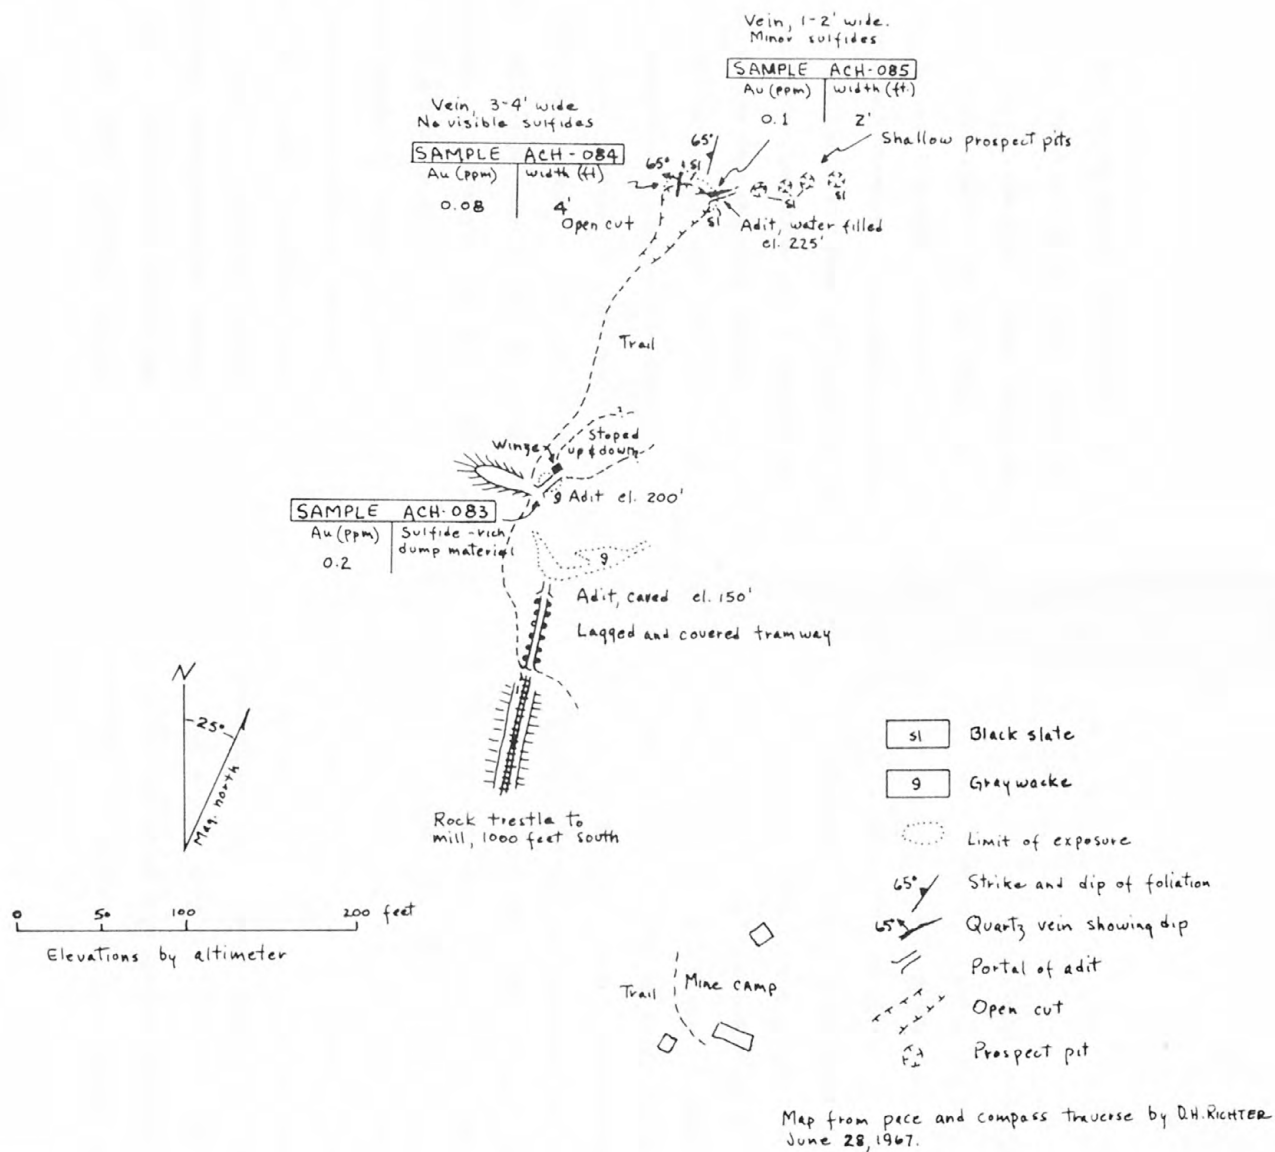 Vein, 1-2' wide.
Minor sulfides
SAMPLE ACH-085
Au (ppm) width (ft.)
0.1 2'
Vein, 3-4' wide
No visible sulfides
SAMPLE ACH-084
Au (ppm) width (ft)
0.08 4'
Open cut
65°
65°
sl
Shallow prospect pits
sl
sl
sl
Adit, water filled
el. 225'
Trail
?
Stoped
up & down
Winze
g
Adit el. 200'
SAMPLE ACH-083
Au (ppm) Sulfide-rich
dump material
0.2
g
Adit, caved el. 150'
Lagged and covered tramway
N
25°
Mag. north
Rock trestle to
mill, 1000 feet south
0 50 100 200 feet
Elevations by altimeter
Trail
Mine camp
sl Black slate
g Graywacke
Limit of exposure
65° Strike and dip of foliation
65° Quartz vein showing dip
Portal of adit
Open cut
Prospect pit
Map from pace and compass traverse by D.H. RICHTER
June 28, 1967.